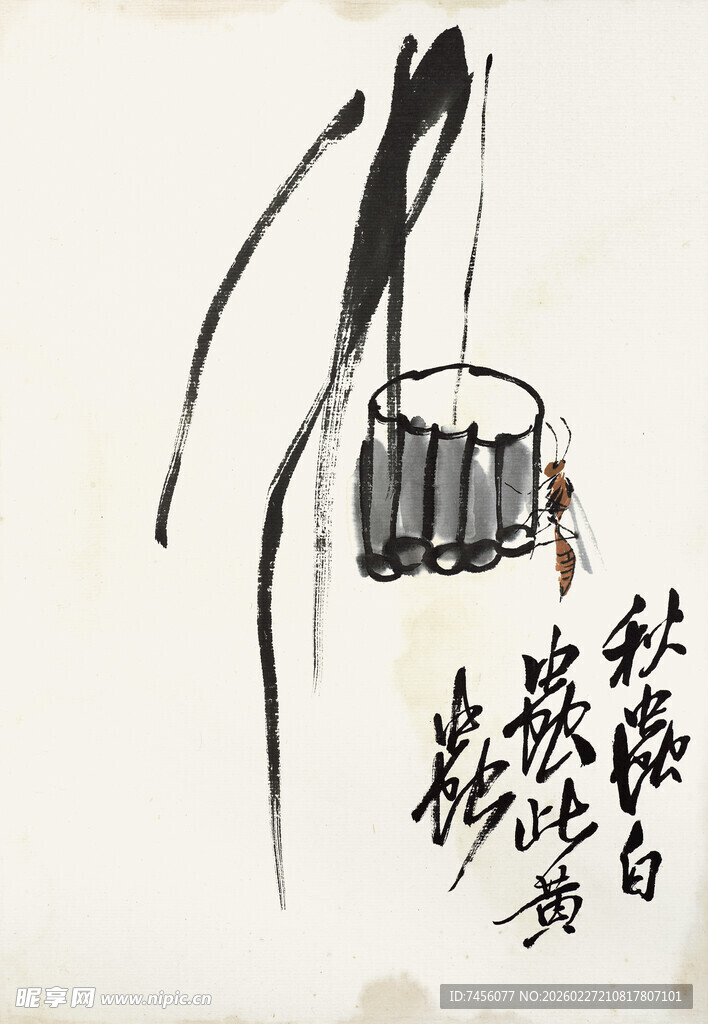 秋蟲白
蟲此黄
蟲
昵享网 www.nipic.cn
ID:7456077 NO:20260227210817807101